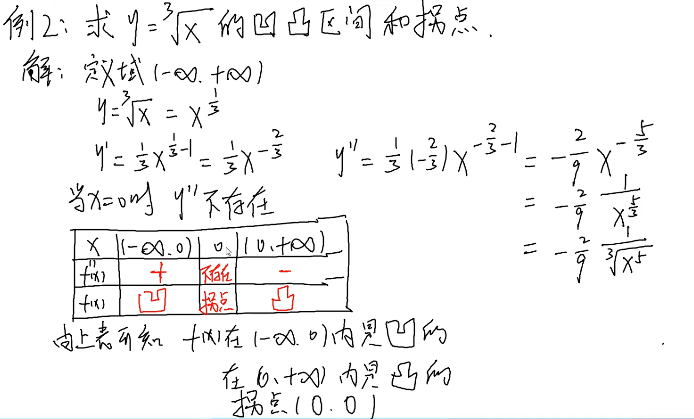 例2: 求 y=∛x 的凹凸区间和拐点.
解: 定义域(-∞.+∞)
y=∛x = x^{1/3}
y' = 1/3 x^{1/3-1} = 1/3 x^{-2/3}   y'' = 1/3 (-2/3) x^{-2/3-1} = -2/9 x^{-5/3}
当x=0时 y''不存在
= -2/9 1/x^{5/3}
= -2/9 1/∛x⁵
x (-∞.0) 0 (0.+∞)
f''(x) + 不存在 -
f(x) 凹 拐点 凸
由上表可知 f(x)在(-∞.0)内是凹的
在(0.+∞)内是凸的
拐点(0.0)